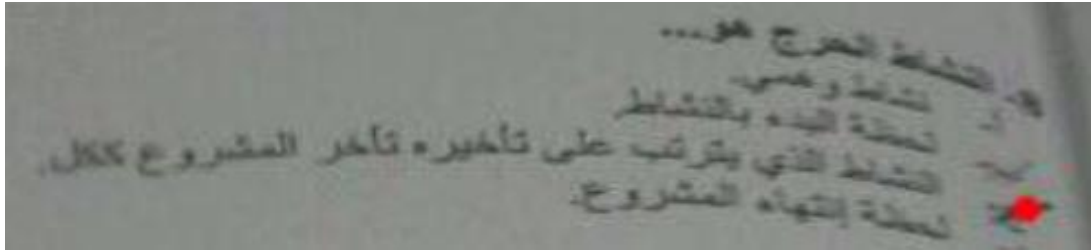 8- النشاط الحرج هو...
أ- نشاط وهمي.
لحظة البدء بالنشاط.
النشاط الذي يترتب على تأخيره تأخر المشروع ككل.
لحظة إنتهاء المشروع.